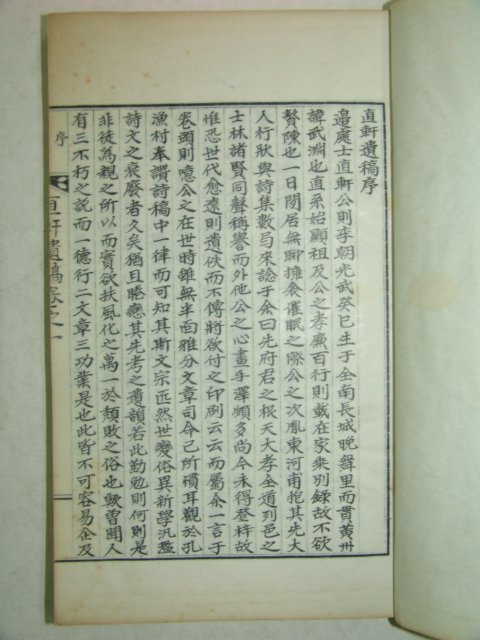 直軒遺稿序
邉處士直軒公則李朝光武癸巳生于全南長城晚舞里而貫黃州
諱武淵也直系始顯祖及公之孝廣百行則載在家乘別錄故不欲
贅陳也一日閒居無聊擁衾催眠之際公之次胤東河甫抱其先大
人行狀與詩集數局來諗于余曰先府君之根天大孝全道列邑之
士林諸賢同聲稱譽而外他公之心畫手澤頗多尚今未得登梓故
惟恐世代愈遠則遺佚而不傳將欲付之印刷云云而屬余一言于
卷頭則噫公之在世時雖無半面雅分文章司命已所積耳觀於孔
漁村奉讚詩稿中一律而可知其斯文宗匠然世變俗異新學汎濫
詩文之衰廢者久矣猶且睠戀其先考之遺韻若此勤勉則何則是
非徒為親之所以而實欲扶風化之萬一於頹敗之俗也歟曾聞人
有三不朽之說而一德行二文章三功業是也此皆不可容易企及
序
直軒遺稿卷之一